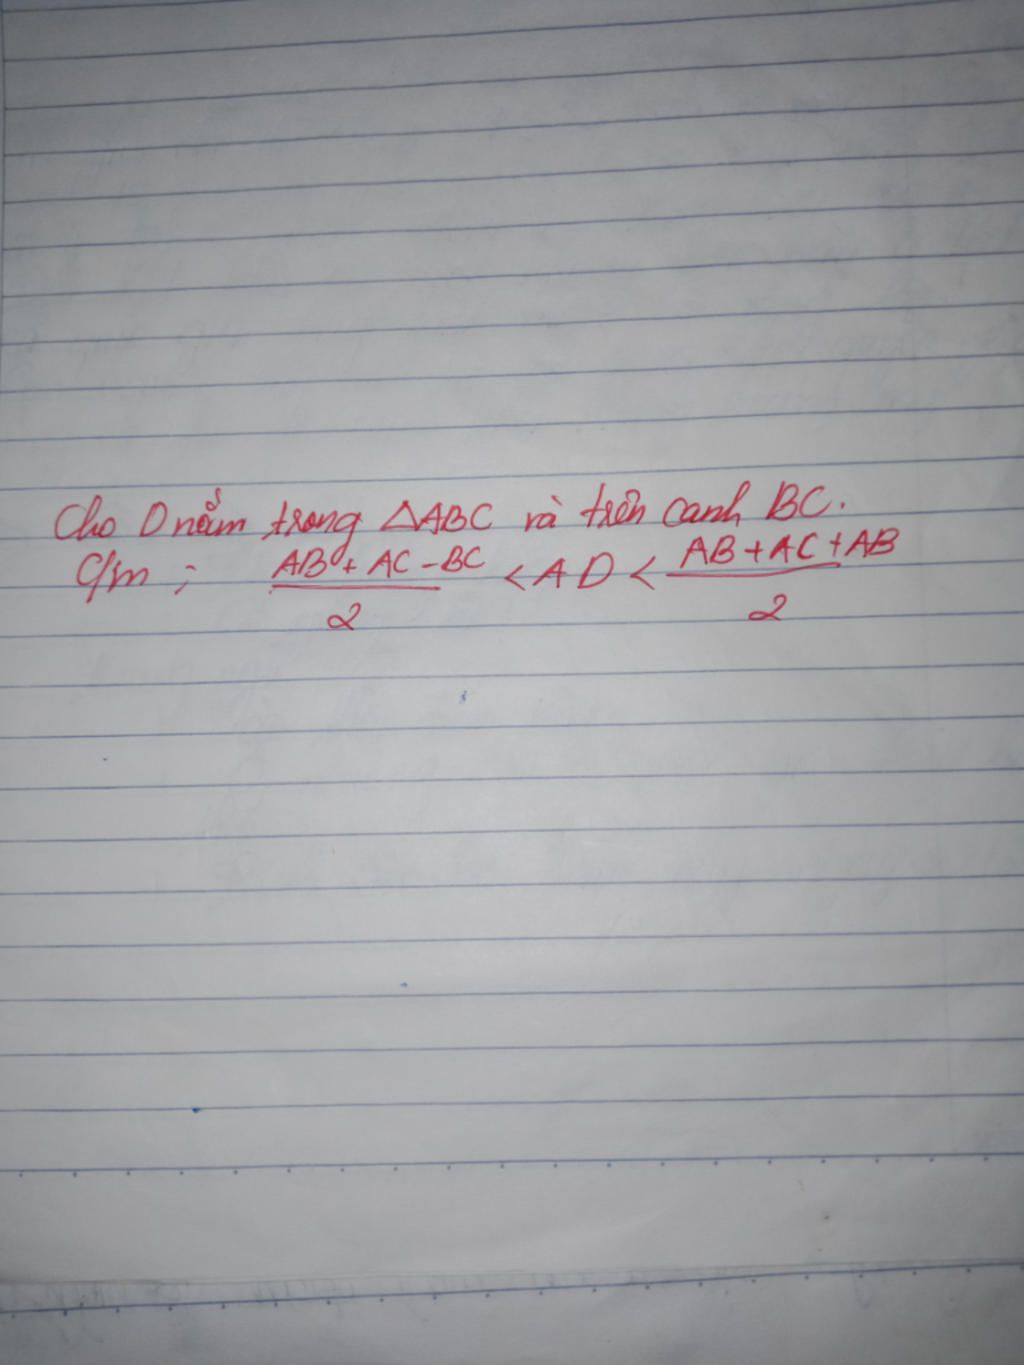 Cho D nằm trong △ABC và trên cạnh BC.
C/m : AB + AC - BC / 2 < AD < AB + AC + AB / 2